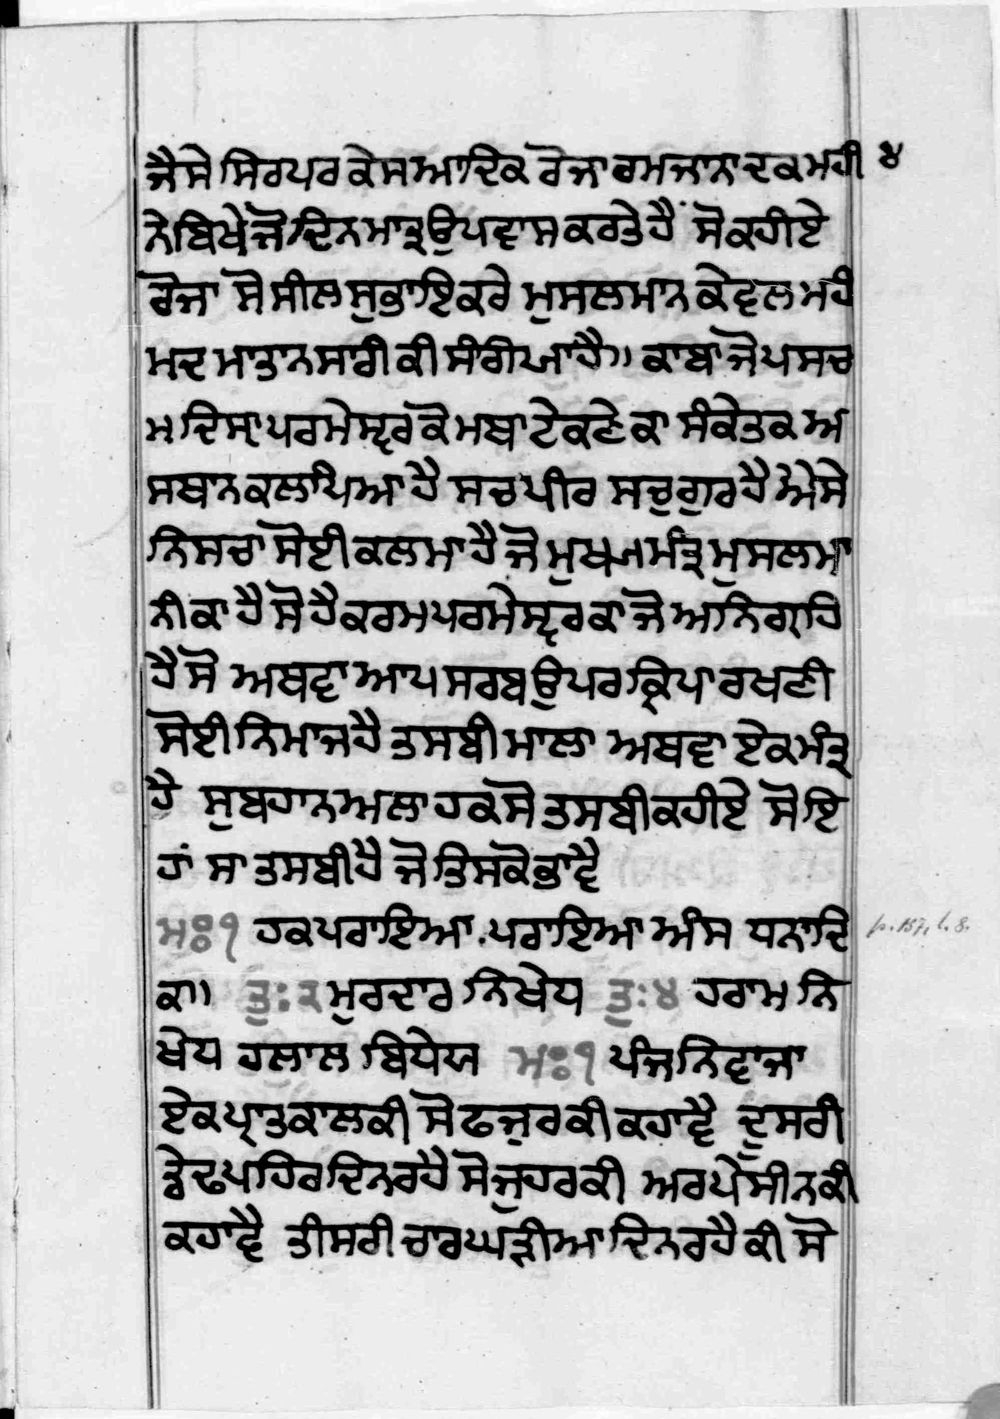 ਜੈਸੇ ਸਿਰਪਰ ਕੇਸ ਆਦਿਕ ਰੋਜਾ ਰਮਜਾਨਾਦਕ ਮਹੀ ੪
ਨੇ ਬਿਖੇ ਜੋ ਦਿਨਮਾਤ੍ਰ ਉਪਵਾਸ ਕਰਤੇ ਹੈਂ ਸੋ ਕਹੀਏ
ਰੋਜਾ ਸੋ ਸੀਲ ਸੁਭਾਇ ਕਰੇ ਮੁਸਲਮਾਨ ਕੇਵਲ ਮਹੰ
ਮਦ ਮਾਤਾਨਸਾਰੀ ਕੀ ਸੰਗਿਆ ਹੈ॥ ਕਾਬਾ ਜੋ ਪਸਚ
ਮ ਦਿਸਾ ਪਰਮੇਸ੍ਵਰ ਕੋ ਮਥਾ ਟੇਕਣੇ ਕਾ ਸੰਕੇਤਕ ਅ
ਸਥਾਨ ਕਲਪਿਆ ਹੈ ਸਚ ਪੀਰ ਸਚੁ ਗੁਰ ਹੈ ਐਸੇ
ਨਿਸਚਾ ਸੋਈ ਕਲਮਾ ਹੈ ਜੋ ਮੁਖਜ ਮੰਤ੍ਰ ਮੁਸਲਮਾ
ਨੀ ਕਾ ਹੈ ਸੋ ਹੈ ਕਰਮ ਪਰਮੇਸ੍ਵਰ ਕਾ ਜੋ ਅਨਿਗ੍ਰਹਿ
ਹੈ ਸੋ ਅਥਵਾ ਆਪ ਸਰਬ ਉਪਰ ਕ੍ਰਿਪਾ ਰਖਣੀ
ਸੋਈ ਨਿਮਾਜ ਹੈ ਤਸਬੀ ਮਾਲਾ ਅਥਵਾ ਏਕ ਮੰਤ੍ਰ
ਹੈ ਸੁਬਹਾਨ ਅਲਾਹਕ ਸੋ ਤਸਬੀ ਕਹੀਏ ਸੋ ਇ
ਹਾਂ ਸਾ ਤਸਬੀ ਹੈ ਜੋ ਤਿਸਕੋ ਭਾਵੈ
ਮਃ੧ ਹਕ ਪਰਾਇਆ. ਪਰਾਇਆ ਅੰਸ ਧਨਾਦਿ
ਕਾ॥ ਤੁ: ੨ ਮੁਰਦਾਰ ਨਿਖੇਧ ਤੁ: ੪ ਹਰਾਮ ਨਿ
ਖੇਧ ਹਲਾਲ ਬਿਧੇਯ ਮਃ੧ ਪੰਜ ਨਿਵਾਜਾ
ਏਕ ਪ੍ਰਾਤਕਾਲ ਕੀ ਸੋ ਫਜੁਰ ਕੀ ਕਹਾਵੈ ਦੂਸਰੀ
ਡੇਢ ਪਹਿਰ ਦਿਨ ਰਹੈ ਸੋ ਜੁਹਰ ਕੀ ਅਰ ਪੇਸੀਨ ਕੀ
ਕਹਾਵੈ ਤੀਸਰੀ ਚਾਰ ਘੜੀਆ ਦਿਨ ਰਹੈ ਕੀ ਸੋ
p. 157, l. 8.